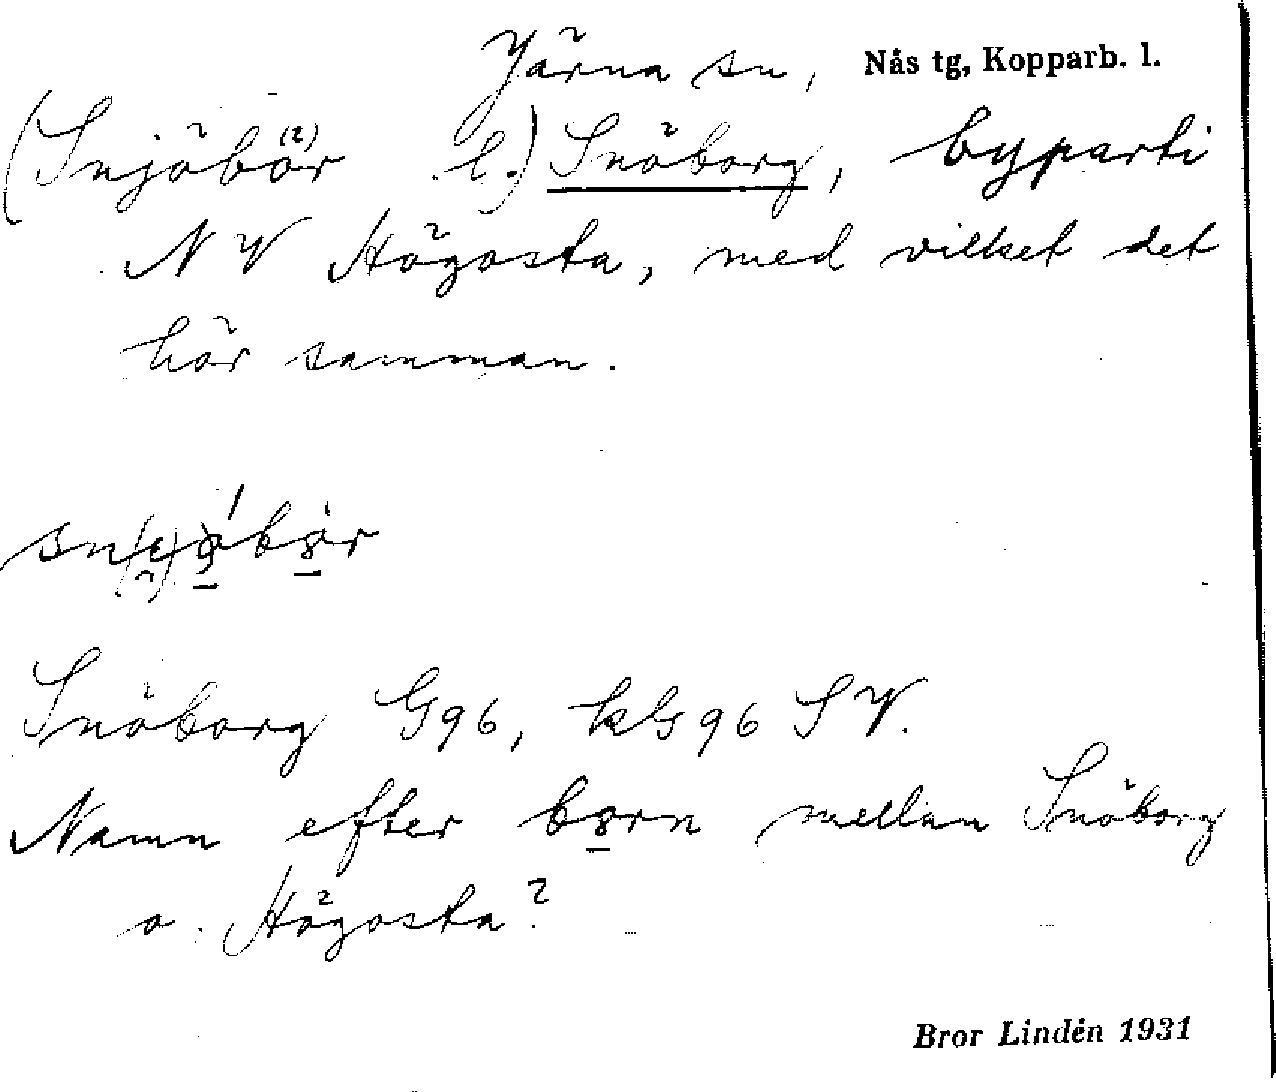 Järna sn, Nås tg, Kopparb. l.
(Snjöbör l.) Snöborg, byparti
NV Högosta, med vilket det
hör samman.
Snöborg G96, kG96 SV.
Namn efter born mellan Snöborg
o. Högosta?
Bror Lindén 1931